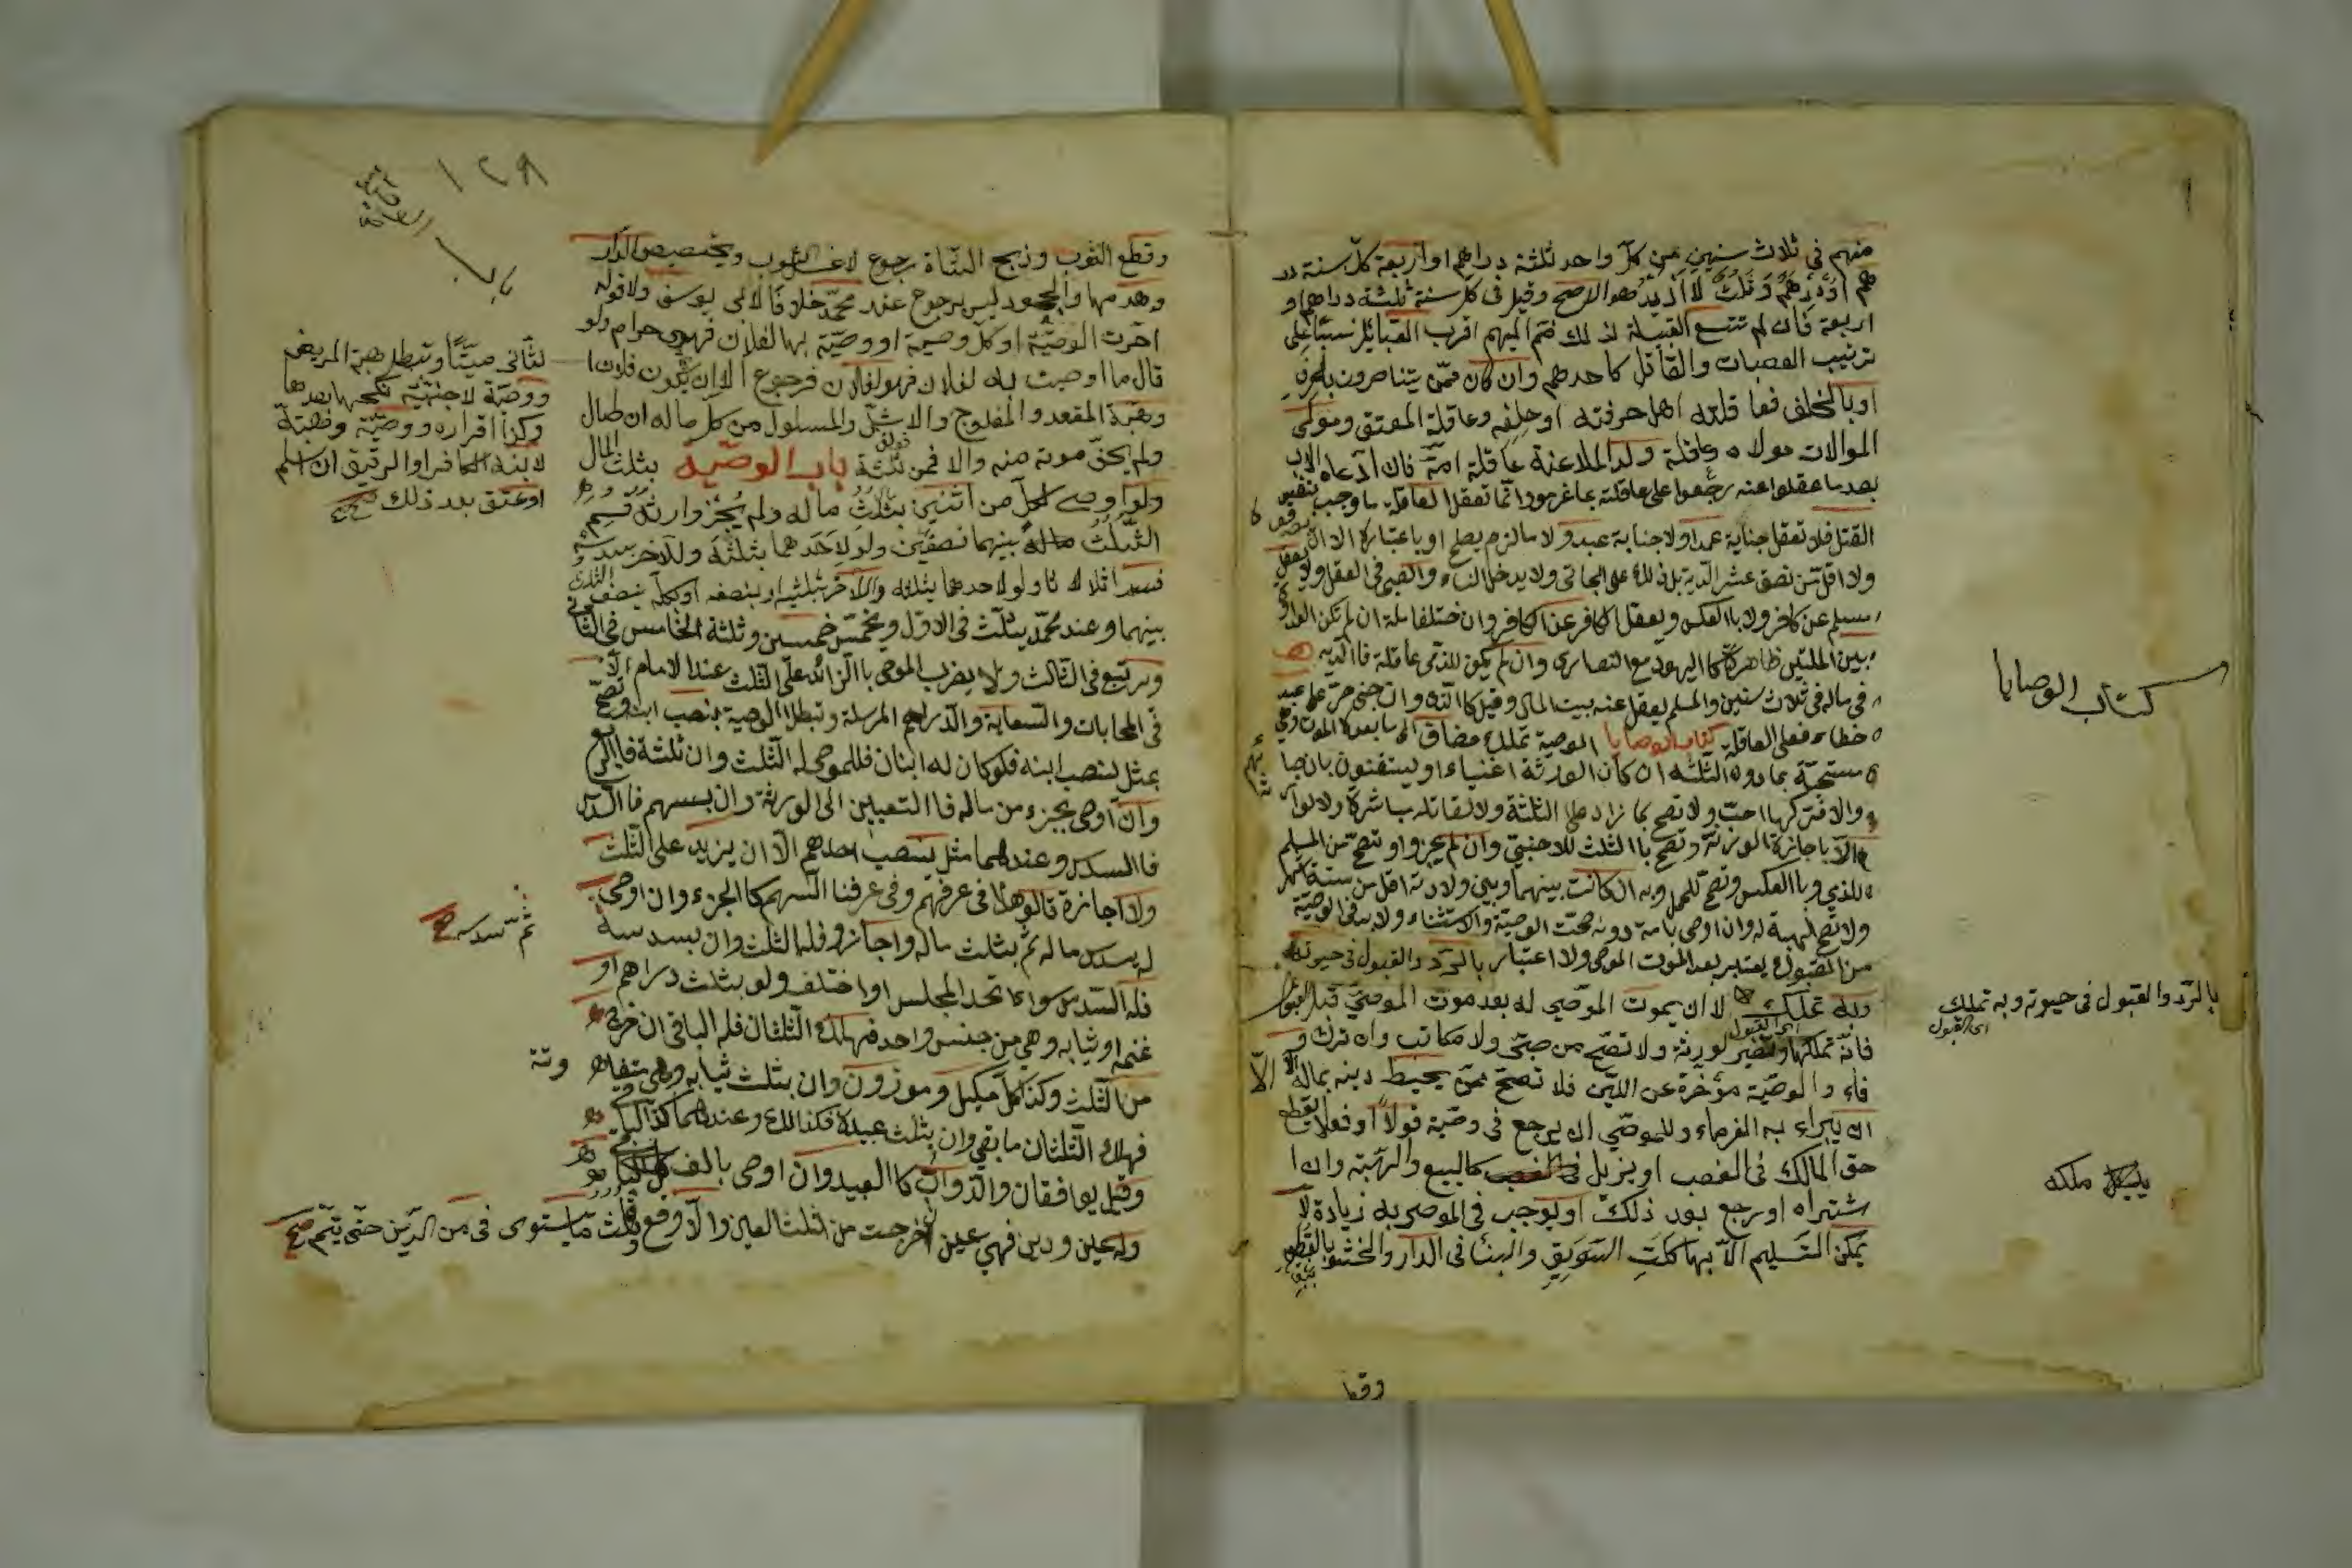 منهم في ثلاث سنين من كل واحد ثلثة دراهم او اربعة كل سنة در
هم او درهم وثلث لا ازيد هو الاصح وقيل في كل سنة ثلثة دراهم او
اربعة فان لم تتسع القبيلة لذلك ضم اليهم اقرب القبائل نسبا على
ترتيب العصبات والقاتل كاحدهم وان كان ممن يتناصرون بالحرف
او بالحلف فعاقلته اهل حرفته او حلفه وعاقلة المعتق ومولى
الموالات مولاه وعاقلة ولد الملاعنة عاقلة امه فان ادعاه الاب
بعد ما عقلوا عنه رجعوا على عاقلته بما غرموا وانما تعقل العاقلة ما وجب بنفس
القتل فلا تعقل جناية عمد ولا جناية عبد ولا ما لزم بصلح او باعتراف الا ان
ولا اقل من نصف عشر الدية بل ذلك على الجاني ولا يدخل النساء والصبي في العقل ولا يعقل
مسلم عن كافر ولا بالعكس ويعقل الكافر عن الكافر وان اختلفا ملة ان لم تكن العداوة
بين الملتين ظاهرة كاليهود مع النصارى وان لم يكن للذمي عاقلة فالدية
في ماله في ثلاث سنين والمسلم يعقل عنه بيت المال وقيل كالذمي وان جنى حر على عبد
خطاء فعلى العاقلة كتاب الوصايا الوصية تمليك مضاف الى ما بعد الموت وهي
مستحبة بما دون الثلث ان كان الورثة اغنياء او يستغنون بانصبا
والا فتركها احب ولا تصح بما زاد على الثلثة ولا لقاتله مباشرة ولا لوارث
الا باجازة الورثة وتصح بالثلث للاجنبي وان لم يجيزوا وتصح من المسلم
للذمي وبالعكس وتصح للحمل وبه ان كانت بينهما وبين ولادته اقل من ستة اشهر
ولا تصح الهبة له وان اوصى بامة دونه صحت الوصية والاستثناء ولا بد في الوصية
من القبول ويعتبر بعد الموت الموصي ولا اعتبار بالرد والقبول في حيوته
وبه تملك الا ان يموت الموصى له بعد موت الموصي قبل القبول
فانه تملكها وتصير لورثته ولا تصح من صبي ولا مكاتب وان ترك و
فاء والوصية مؤخرة عن الدين فلا تصح ممن يحيط دينه بماله الا
ان يبراء به الغرماء وللموصي ان يرجع في وصية قولا او فعلا يقطع
حق المالك في الغصب او يزيل كالبيع والهبة وان ا
شتراه او رجع بعد ذلك او يوجب في الموصى به زيادة لا
يمكن التسليم الا بها كلت السويق والبناء في الدار والحشو بالقطن
وقطع
كتاب الوصايا
بالرد والقبول في حيوته وبه تملك
اي القبول
ملكه
١٢٩
وقطع الثوب وذبح الشاة رجوع لا غسل الثوب وتجصيص الدار
وهدمها والجحود ليس برجوع عند محمد خلافا لابي يوسف ولا قوله
اخرت الوصية او كل وصية اووصية بها لفلان فهي حرام ولو
قال ما اوصيت به لفلان فهو لفلان فرجوع الا ان يكون فلان ا
لثاني ميتا وتبطل هبة المريض
ووصية لاجنبية نكحها بعدها
وكذا اقراره ووصية وهبته
لابنه الكافر او الرقيق ان اسلم
او عتق بعد ذلك صح
وهبة المقعد والمفلوج والاشل والمسلول من كل ماله ان طال
ولم يخف موته منه والا فمن ثلثة باب الوصية بثلث المال
ولو اوصى لكل من اثنين بثلث ماله ولم يجز وارثه قسم
الثلث بينهما نصفين ولو لاحدهما بثلثة وللاخر بسدسه
فسد اثلاثا ولو لاحدهما بثلثه وللاخر بثلثيه او بنصفه او بكله ينصف الثلث
بينهما وعند محمد يثلث في الاول ويخمس خمسين وثلثة اخماس في الثاني
ويربع في الثالث ولا يضرب الموصى بالزائد على الثلث عند الامام الا
في المحابات والسعاية والدراهم المرسلة وتبطل الوصية بنصب ابنه وتصح
بمثل نصيب ابنه فلو كان له ابنان فللموصى له الثلث وان ثلثة فالربع
وان اوصى بجزء من ماله فالتعيين الى الورثة وان بسهم فالسدس
فالسدس وعندهما مثل نصيب احدهم الا ان يزيد على الثلث
ولا اجازة قالوا هذا في عرفهم وفي عرفنا السهم كالجزء وان اوصى
له بسدس ماله ثم بثلث ماله واجازوا فله الثلث وان بسدسه
ثم بسدسه صح
فله السدس سواء اتحد المجلس او اختلف ولو بثلث دراهم او
غنمه او ثيابه وهي من جنس واحد فهلك الثلثان فله الباقي ان خرج
من الثلث وكذا كل مكيل وموزون وان بثلث ثيابه وهي متفاوتة
فهلك الثلثان ما بقي وان بثلث عبيده فكذلك وعندهما كذا
وقيل يوافقان والدواب كالعبيد وان اوصى بالف
وله عين ودين فهي عين ان خرجت من ثلث العين والا دفع وثلث ما يستوفى في من الدين حتى يتم صح